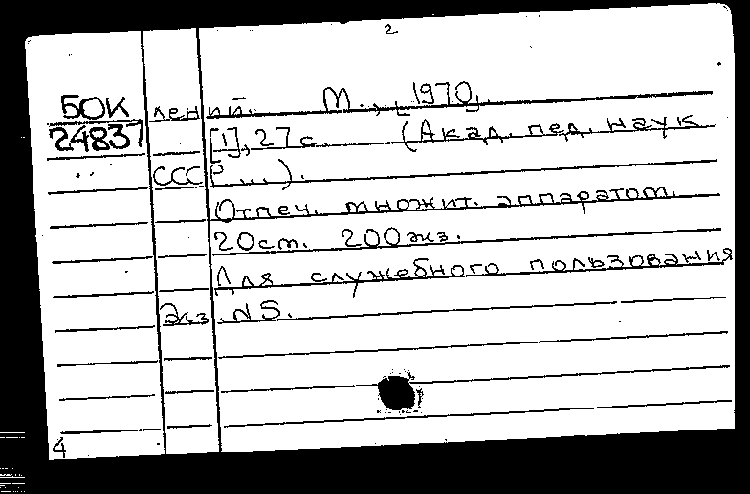 2
БОК лений. М., [1970].
24837 [1], 27 с. (Акад. пед. наук
СССР ...).
Отпеч. множит. аппаратом.
20 см. 200 экз.
Для служебного пользования
Экз. N5.
4